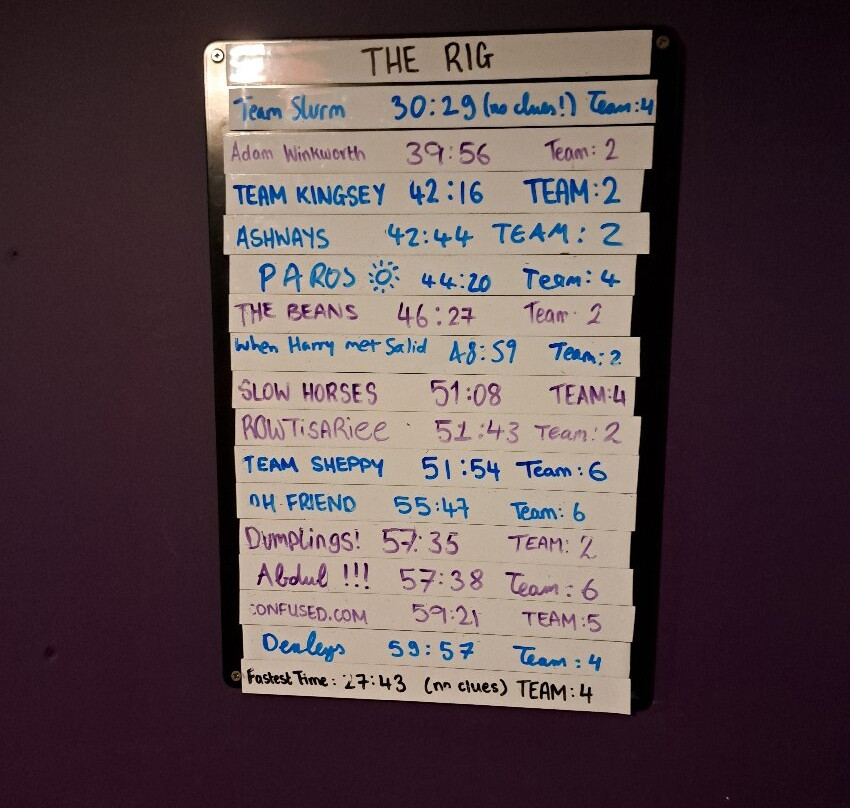 THE RIG
Team Slurm 30:29 (no clues!) Team:4
Adam Winkworth 39:56 Team: 2
TEAM KINGSEY 42:16 TEAM:2
ASHWAYS 42:44 TEAM: 2
PAROS 44:20 Team: 4
THE BEANS 46:27 Team: 2
When Harry met Salid 48:59 Team: 2
SLOW HORSES 51:08 TEAM:4
ROWTiSARiee 51:43 Team: 2
TEAM SHEPPY 51:54 Team: 6
OH FRIEND 55:47 Team: 6
Dumplings! 57:35 TEAM: 2
Abdul !!! 57:38 Team: 6
CONFUSED.COM 59:21 TEAM:5
59:57 Team: 4
Fastest Time: 27:43 (no clues) TEAM:4